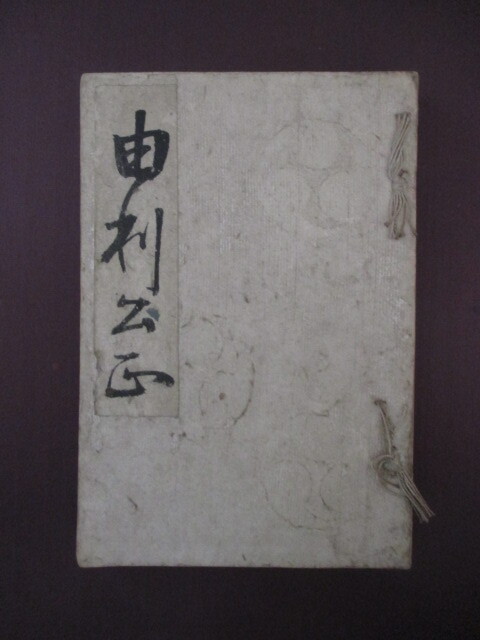 由利公正